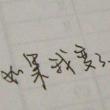 如果我要